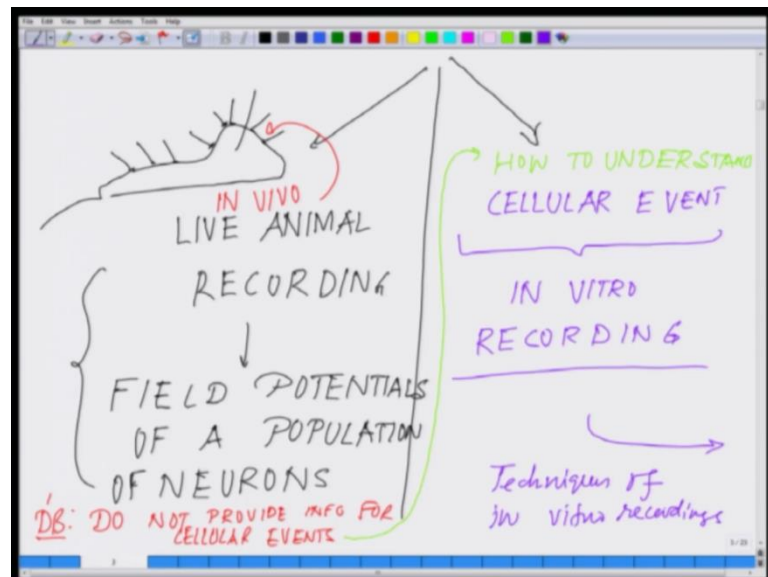 File Edit View Insert Actions Tools Help
IN VIVO
LIVE ANIMAL
RECORDING
FIELD POTENTIALS
OF A POPULATION
OF NEURONS
DB: DO NOT PROVIDE INFO FOR
CELLULAR EVENTS
HOW TO UNDERSTAND
CELLULAR EVENT
IN VITRO
RECORDING
Techniques of
in vitro recordings
2
5/23